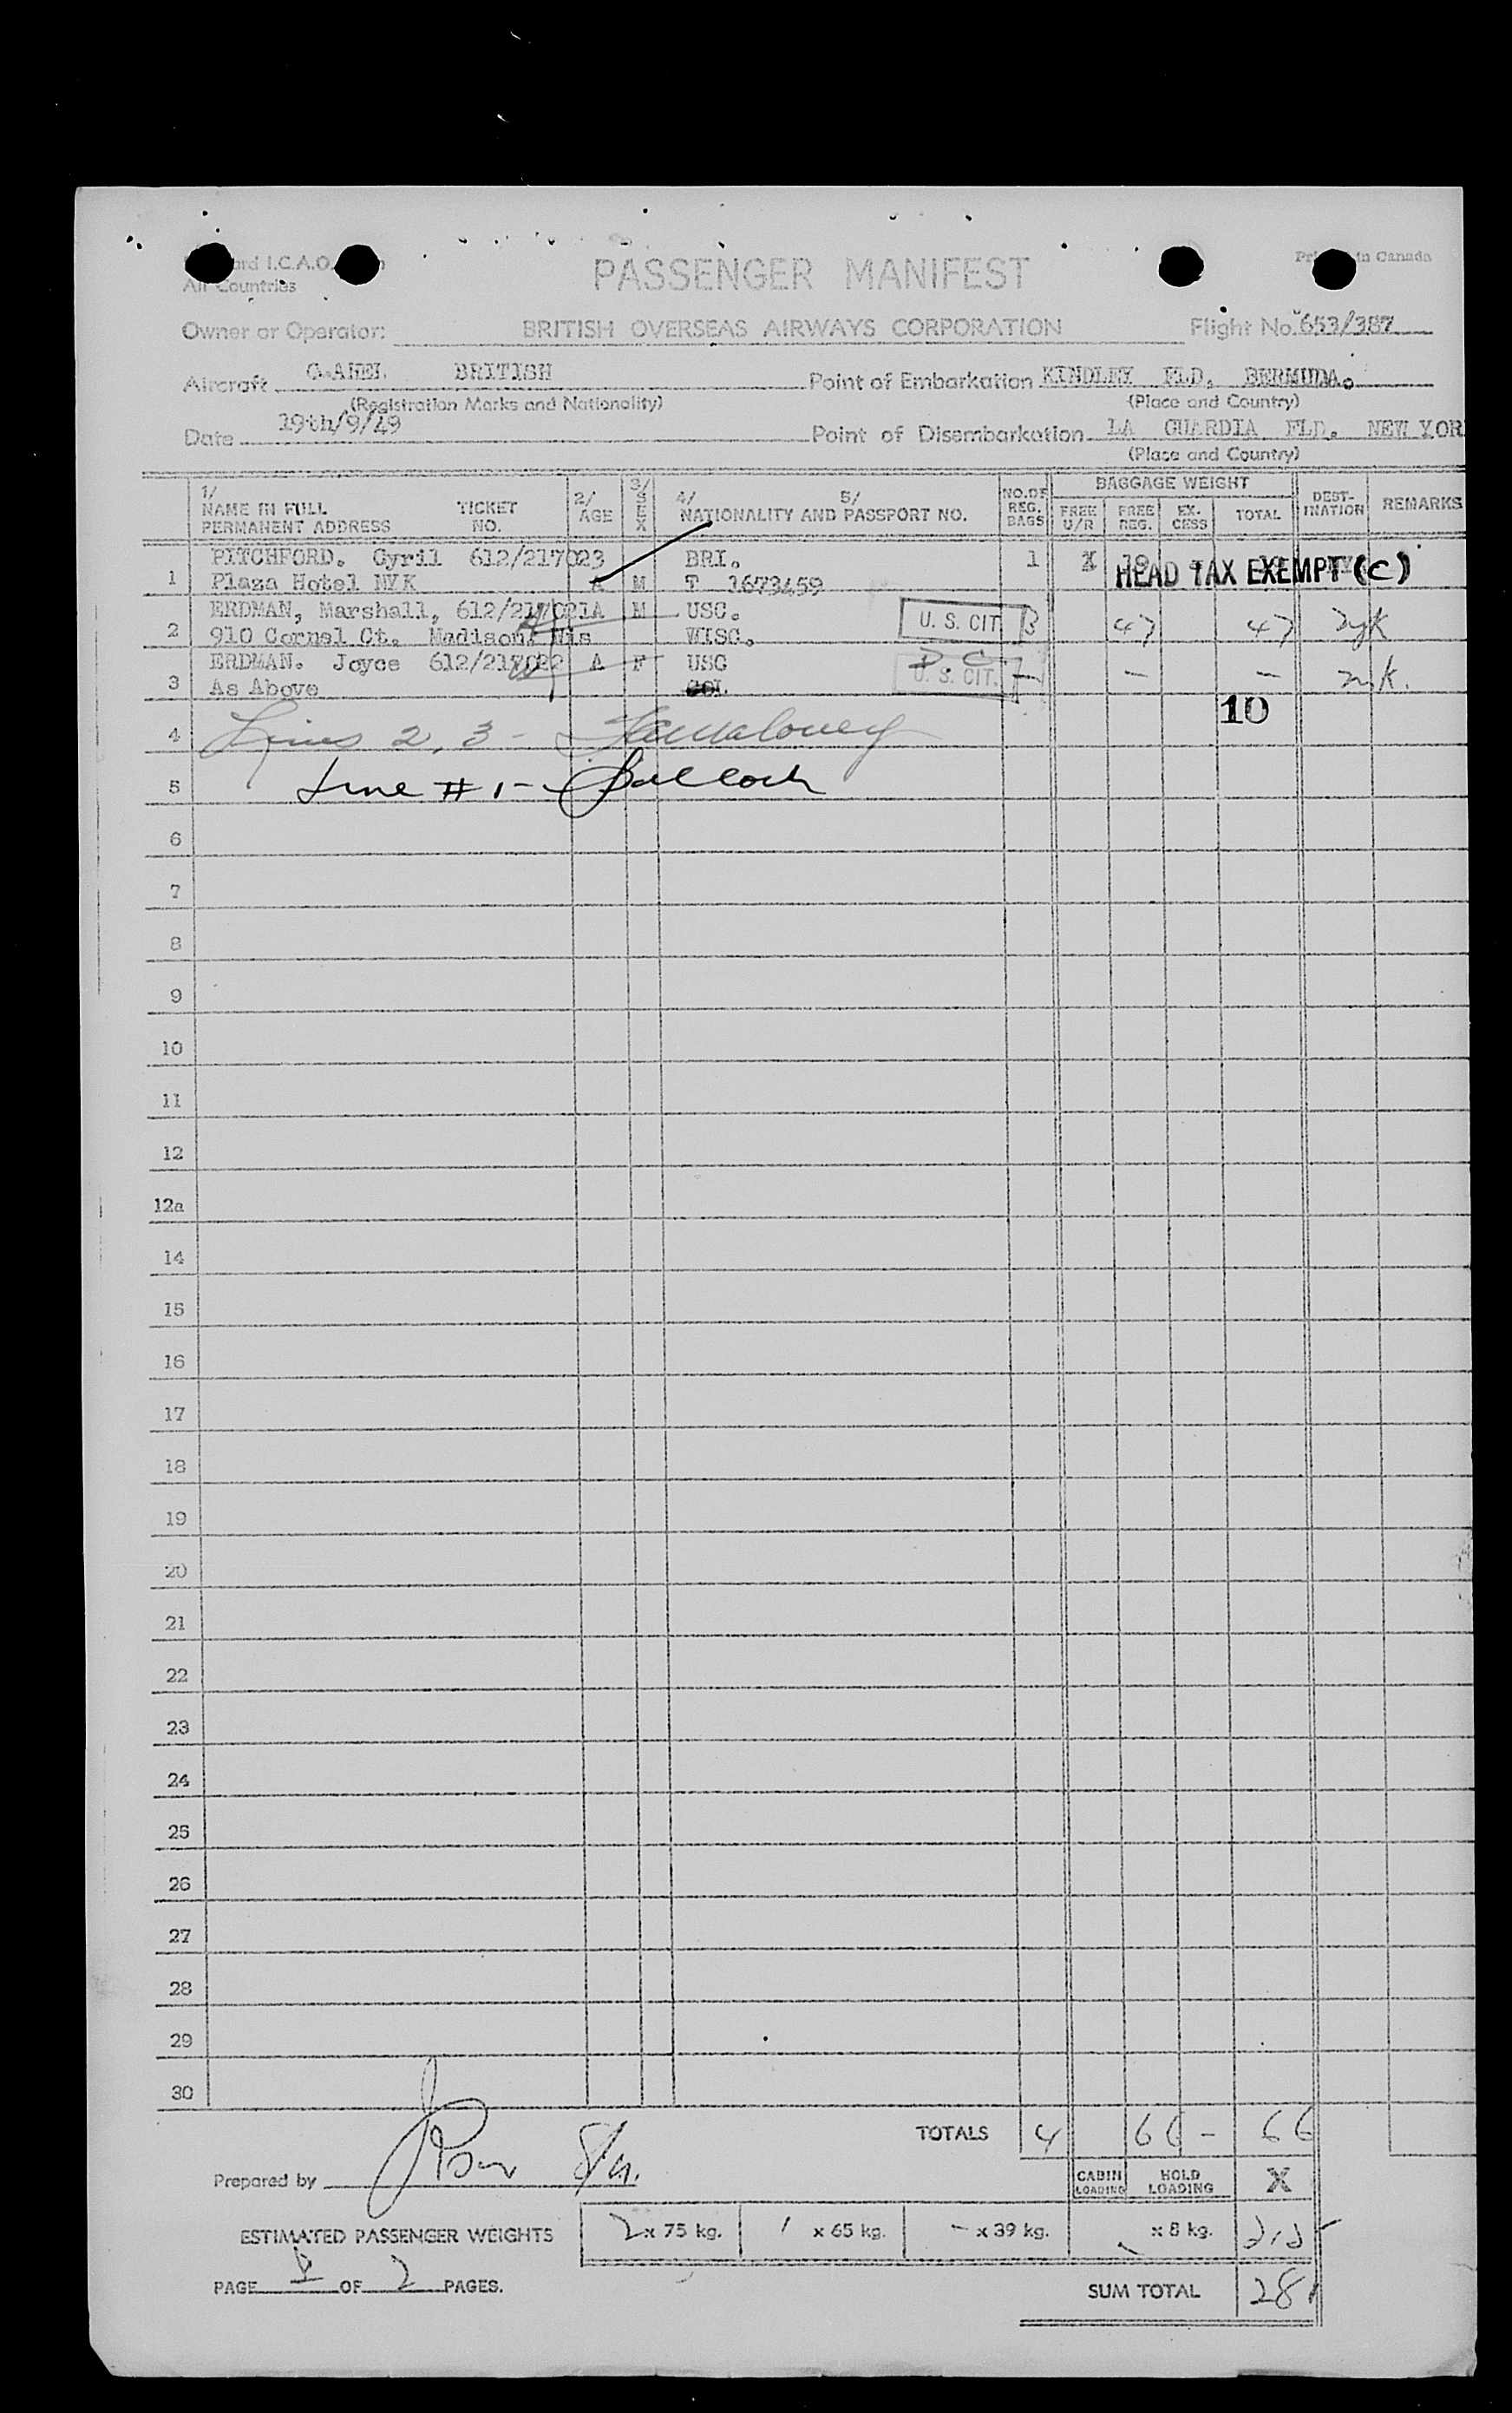 I.C.A.O.
All Countries
PASSENGER MANIFEST
in Canada
Owner or Operator: BRITISH OVERSEAS AIRWAYS CORPORATION Flight No. 653/387
Aircraft BRITISH Point of Embarkation KINDLEY FLD. BERMUDA.
(Registration Marks and Nationality) (Place and Country)
Date 19th/9/49 Point of Disembarkation LA GUARDIA FLD. NEW YOR
(Place and Country)
1/ NAME IN FULL PERMANENT ADDRESS TICKET NO. 2/ AGE 3/ SEX 4/ 5/ NATIONALITY AND PASSPORT NO. NO. OF REG. BAGS BAGGAGE WEIGHT FREE U/R FREE REG. EX-CESS TOTAL DEST-INATION REMARKS
PITCHFORD. Cyril 612/217023 BRI. 1
1 Plaza Hotel NYK A M T 1673459 HEAD TAX EXEMPT (C)
ERDMAN, Marshall, 612/217021A M USC. U. S. CIT. 3 47 47 nyk
2 910 Cornel Ct. Madison, Wis WISC.
ERDMAN. Joyce 612/217022 A F USC D.C. U. S. CIT. — — — nyk.
3 As Above
10
4 Lines 2, 3 -
5 Line # 1 -
6
7
8
9
10
11
12
12a
14
15
16
17
18
19
20
21
22
23
24
25
26
27
28
29
30
TOTALS 4 66 - 66
Prepared by
CABIN LOADING HOLD LOADING X
ESTIMATED PASSENGER WEIGHTS 2 x 75 kg. 1 x 65 kg. - x 39 kg. x 8 kg. 215
PAGE OF 2 PAGES.
SUM TOTAL 281